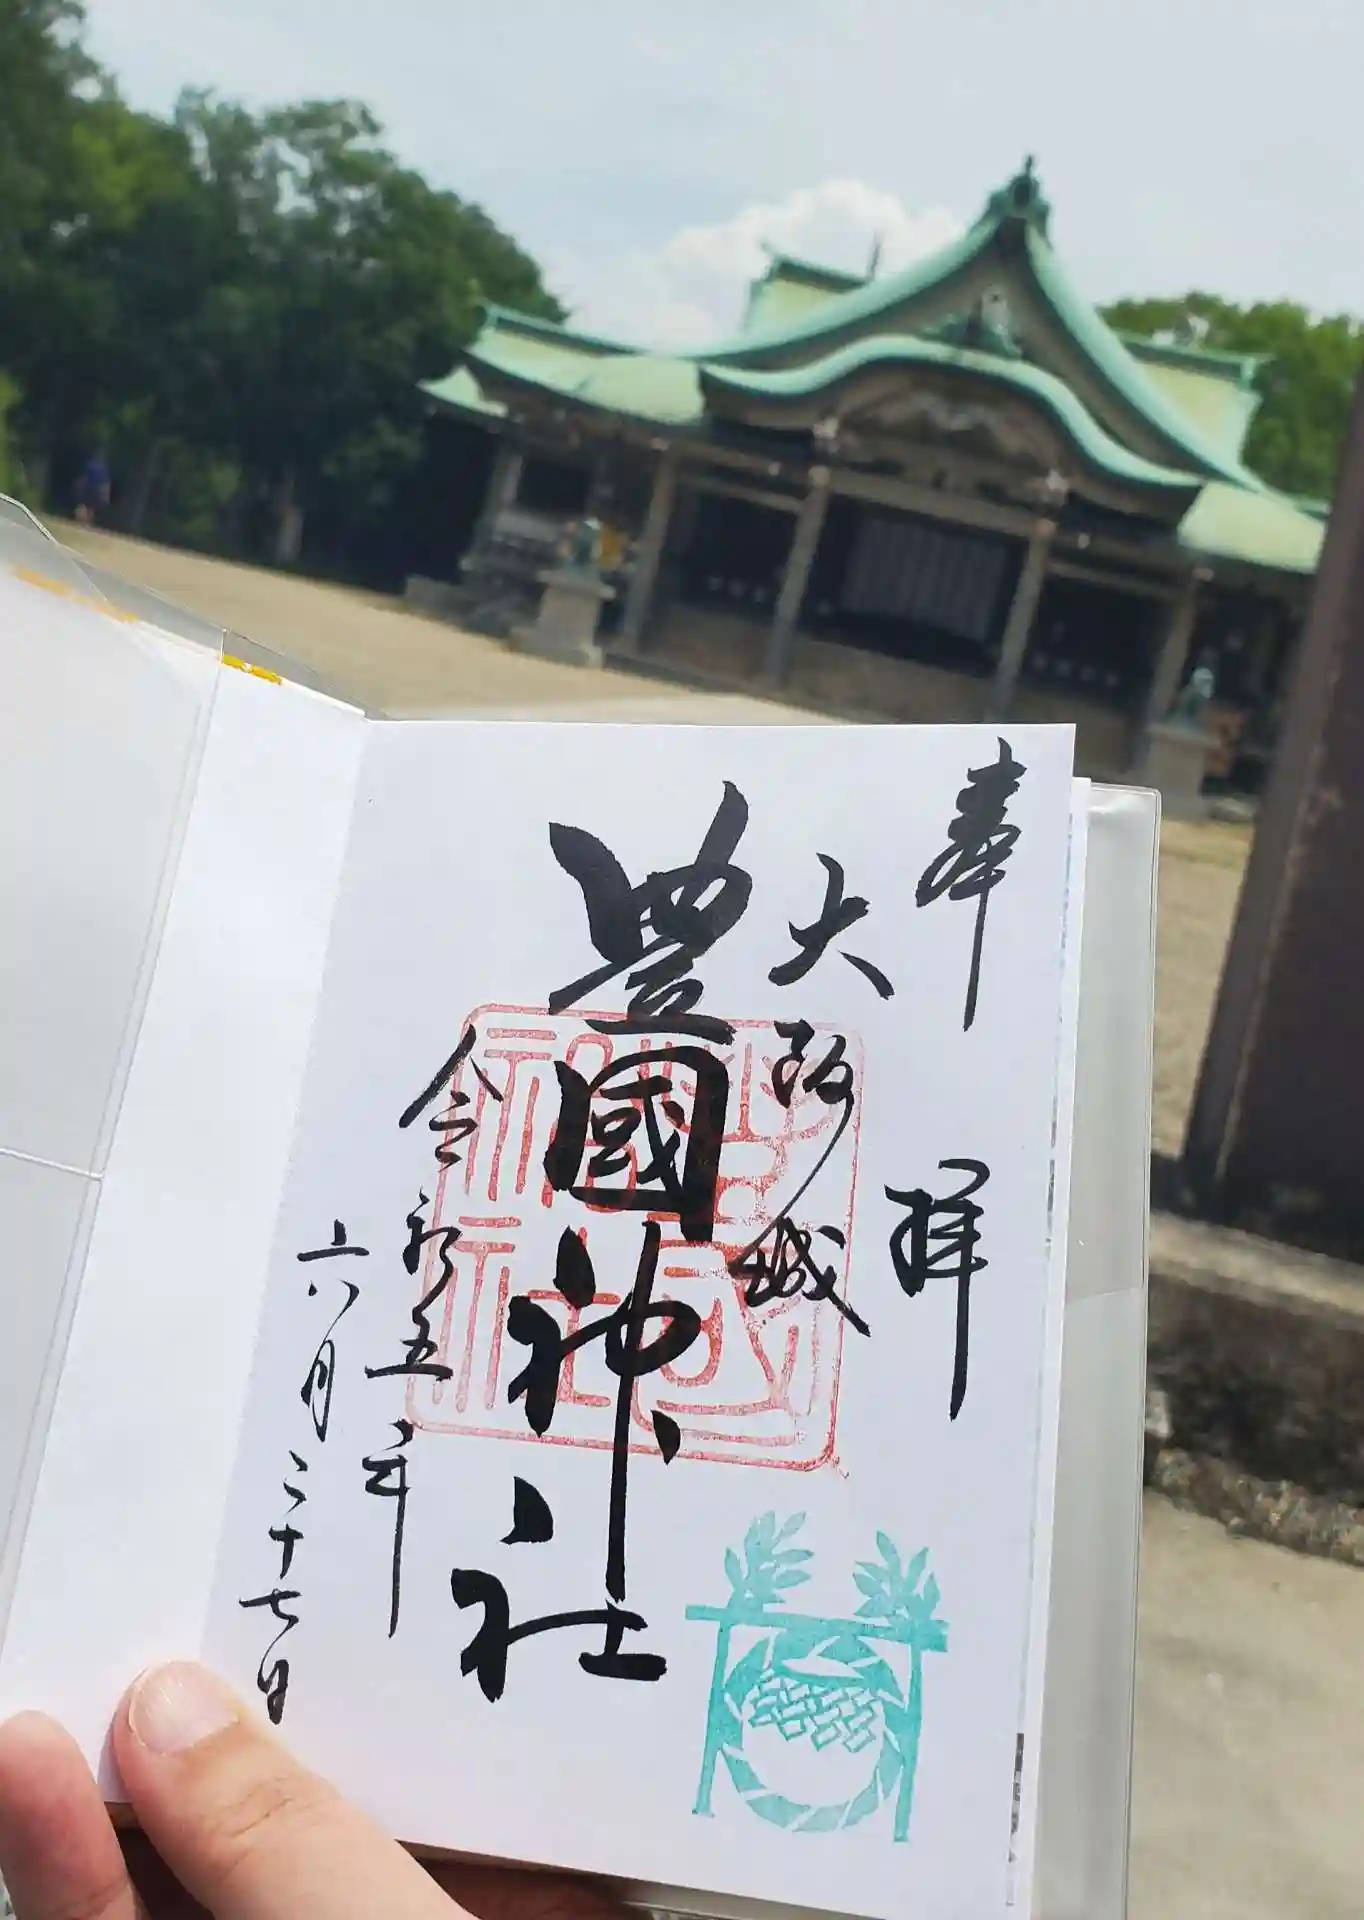 奉拝
大阪城
豊國神社
令和五年
六月二十七日